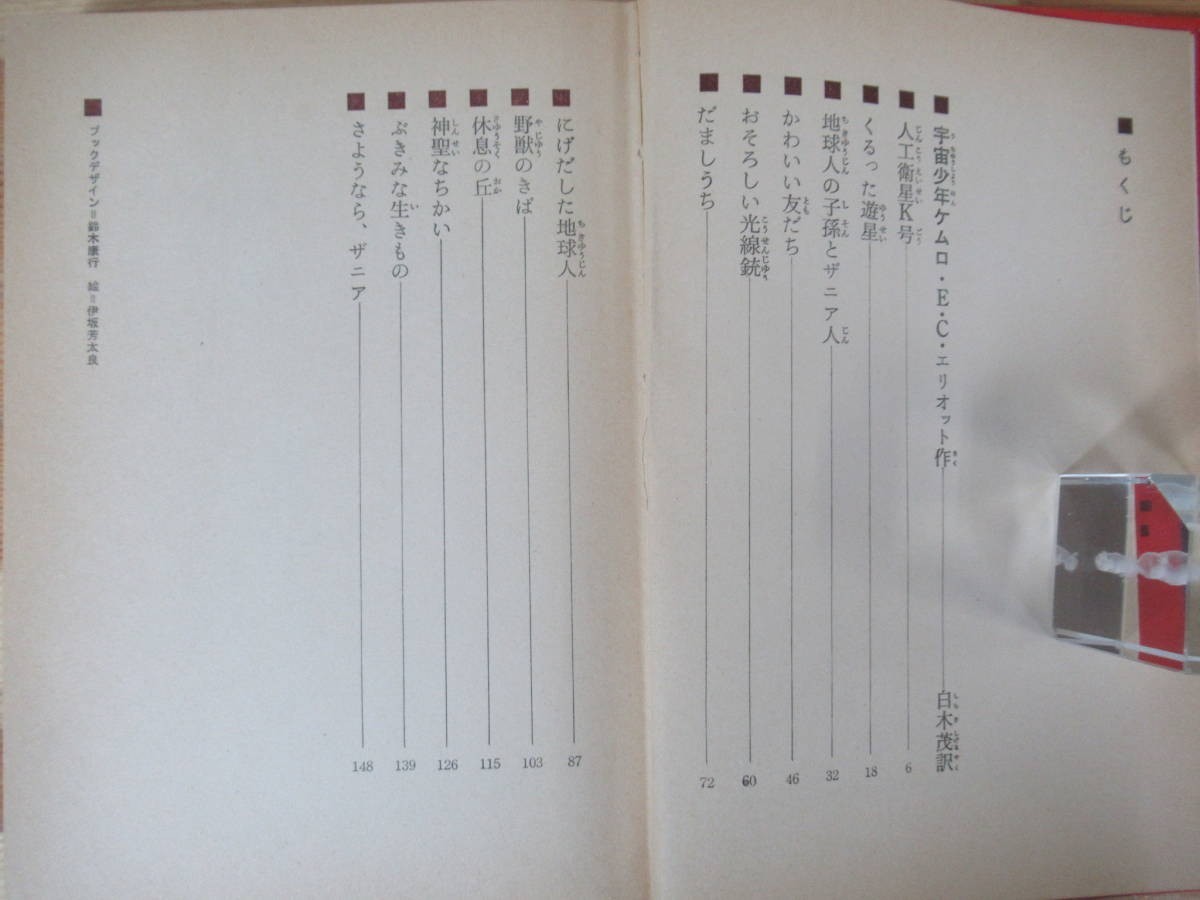 ■もくじ
■宇宙少年ケムロ・E・C・エリオット作 白木茂訳
■人工衛星K号 6
■くるった遊星 18
■地球人の子孫とザニア人 32
■かわいい友だち 46
■おそろしい光線銃 60
■だましうち 72
■にげだした地球人 87
■野獣のきば 103
■休息の丘 115
■神聖なちかい 126
■ぶきみな生きもの 139
■さようなら、ザニア 148
■ブックデザイン=鈴木康行 絵=伊坂芳太良